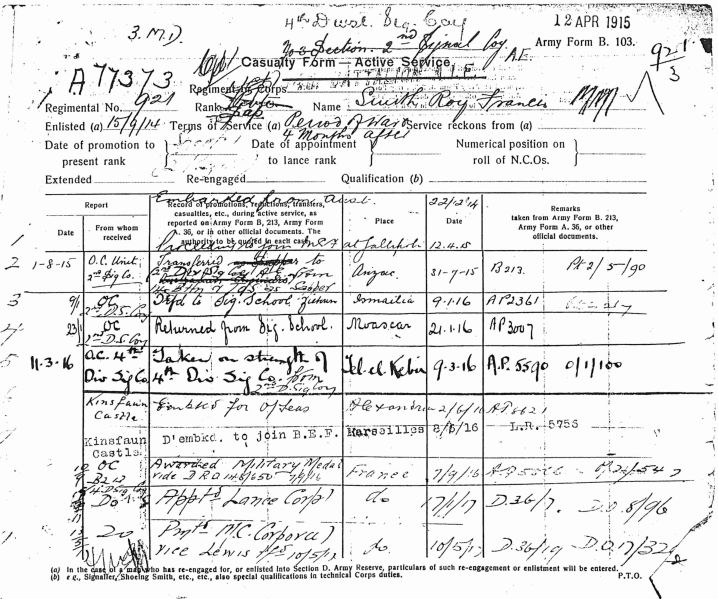 4th Divst. Sig. Coy
12 APR 1915
3. M.D.
No 3 Section. 2nd Signal Coy A.I.F.
Army Form B. 103.
Casualty Form—Active Service.
A 77373
Regiment or Corps
Regimental No. 921 Rank Spr Name Smith Roy Francis MM
Enlisted (a) 15/9/14 Terms of Service (a) Period of War Service reckons from (a)
4 months after
Date of promotion to present rank
Date of appointment to lance rank
Numerical position on roll of N.C.Os.
Extended Re-engaged Qualification (b)
Embarked from Aust. 22/12/14
Report
Date
From whom received
Record of promotions, reductions, transfers, casualties, etc., during active service, as reported on Army Form B, 213, Army Form A. 36, or in other official documents. The authority to be quoted in each case.
Place
Date
Remarks taken from Army Form B. 213, Army Form A. 36, or other official documents.
1 Proceeding to join at Gallipoli 12.4.15
2 1-8-15 O.C. Unit 2nd Sig Co. Transferred to Anzac 31-7-15 B213 Pt 2/5/90
from
Sapper
3 9/1 OC 2nd D.S. Coy Det'd to Sig. School, Zeitoun Ismailia 9.1.16 AP2361
4 23/1 OC 2nd D.S. Coy Returned from Sig. School. Moascar 21.1.16 AP3007
5 11.3.16 O.C. 4th Div Sig Co. Taken on strength of 4th Div Sig Co. from 2nd D. Sig Coy Tel-el-Kebir 9.3.16 A.P. 5590 0/1/100
Kinsfaun Castle Embked for O/Seas Alexandria 2/6/16 AP8621
Kinsfaun Castle. D'embkd. to join B.E.F. Marseilles 8/6/16 L.R. 5756
OC B213 4 D Sig Coy Awarded Military Medal vide DRO France 7/9/16
Do Apptd Lance Corpl do 17/1/17 D.36/7. D.O. 8/96
Do Pmtd M.C. Corporal vice Lewis 10/5/17 do. 10/5/17 D.36/19 D.O.17/32
(a) In the case of a man who has re-engaged for, or enlisted into Section D. Army Reserve, particulars of such re-engagement or enlistment will be entered.
(b) e.g., Signaller, Shoeing Smith, etc., etc., also special qualifications in technical Corps duties.
P.T.O.